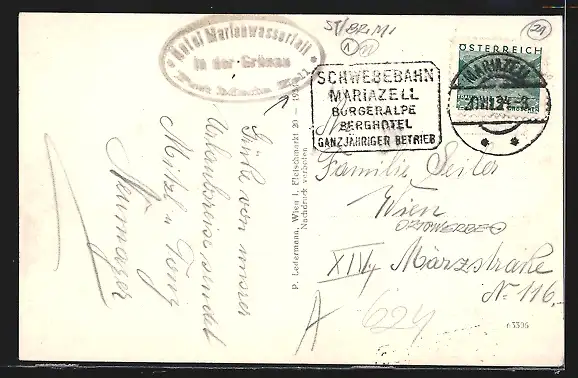 Hotel Marienwasserfall
in der Grünau
ST/BRMI
1
21
ÖSTERREICH
GROSCHEN
MARIAZELL
SCHWEBEBAHN
MARIAZELL
BÜRGERALPE
BERGHOTEL
GANZJÄHRIGER BETRIEB
Grüße von unserer
Urlaubsreise sendet
Mitzl u Tony
Neumayer
P. Ledermann, Wien I., Fleischmarkt 20 — 19
Nachdruck verboten
Familie Seiler
Wien
XIV Märzstraße
No 116.
624
63396